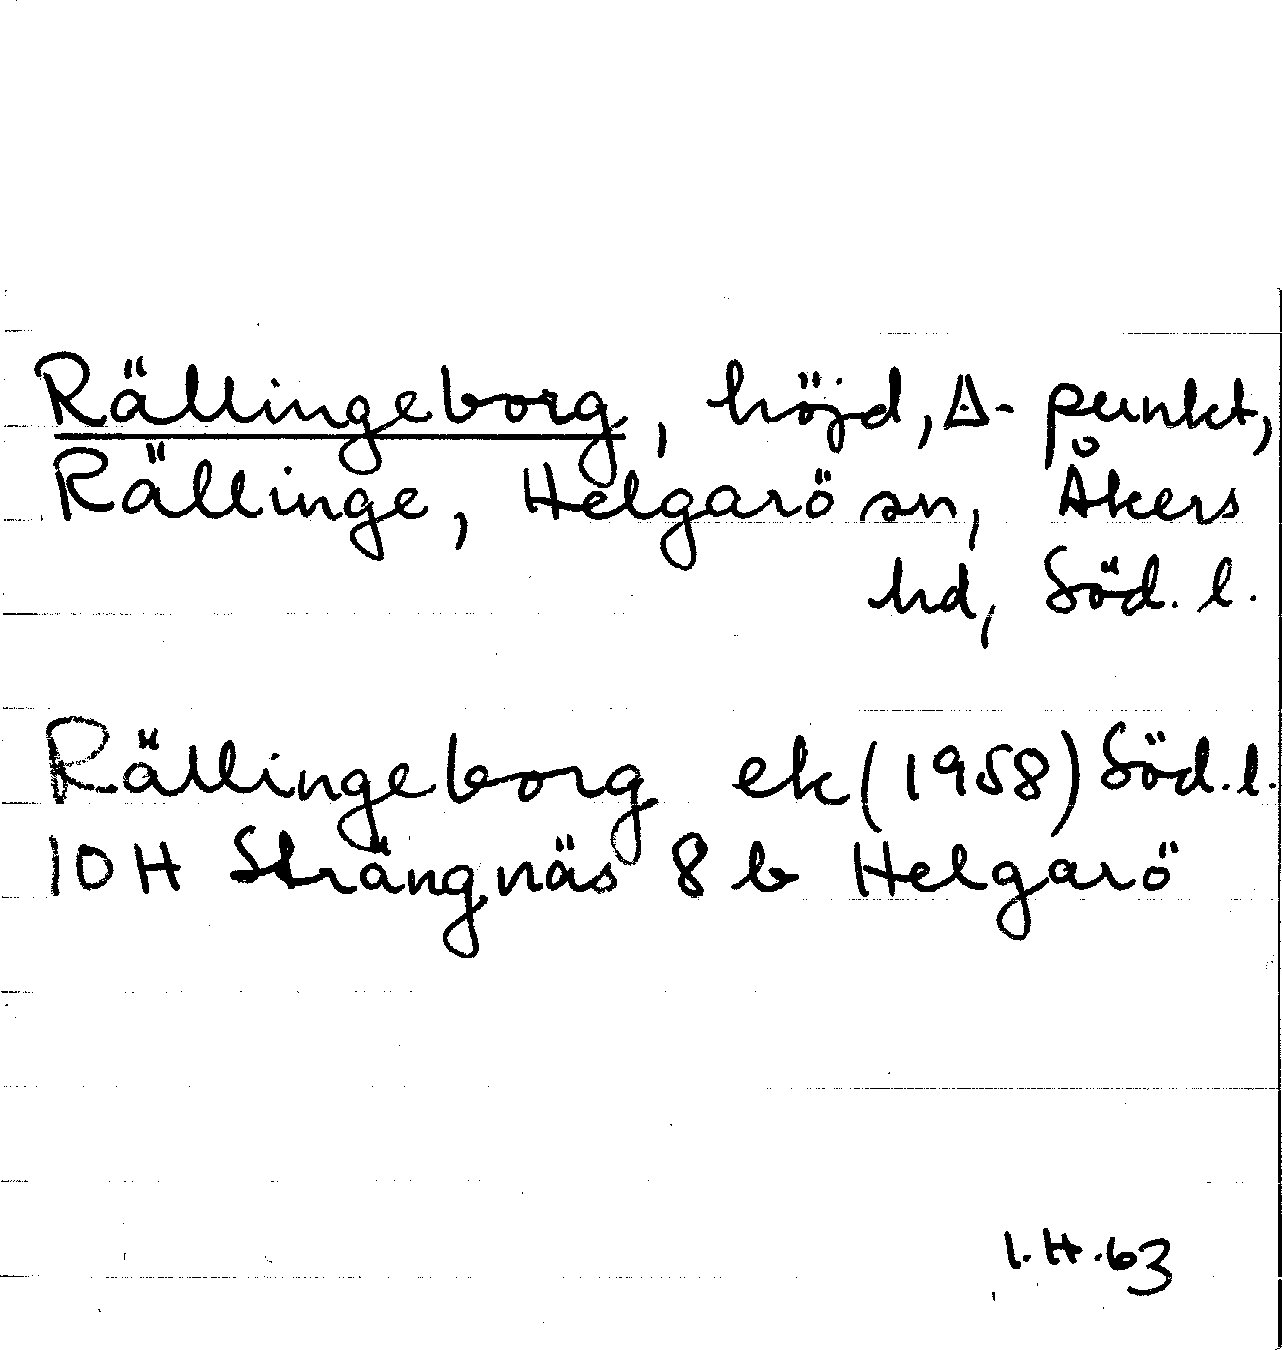 Rällingeborg, höjd, Δ-punkt,
Rällinge, Helgarö sn, Åkers
hd, Söd. l.
Rällingeborg ek (1958) Söd. l.
10 H Strängnäs 8 b Helgarö
I.H.63